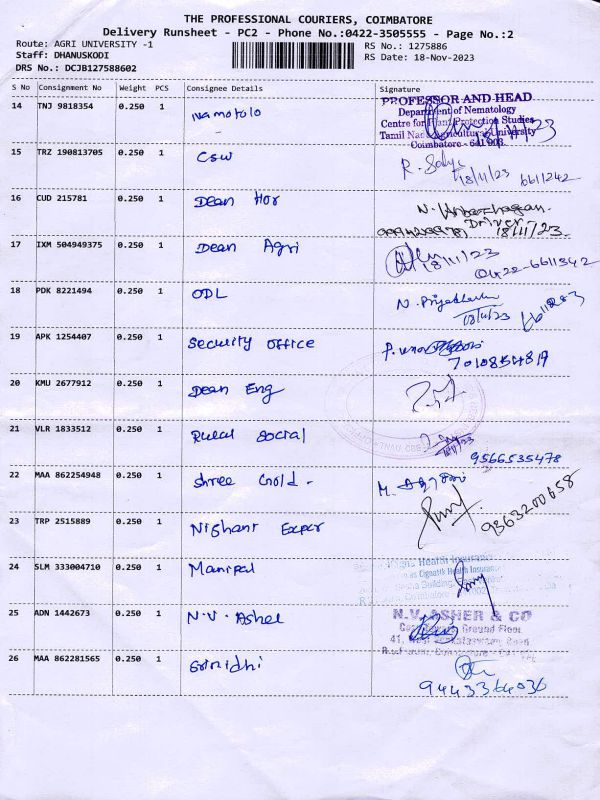 THE PROFESSIONAL COURIERS, COIMBATORE
Delivery Runsheet - PC2 - Phone No.:0422-3505555 - Page No.:2
Route: AGRI UNIVERSITY -1
Staff: DHANUSKODI
DRS No.: DCJB127588602
RS No.: 1275886
RS Date: 18-Nov-2023
S No Consignment No Weight PCS Consignee Details Signature
14 TNJ 9818354 0.250 1
PROFESSOR AND HEAD
Department of Nematology
Centre for Plant Protection Studies
Tamil Nadu Agricultural University
Coimbatore - 641 003
15 TRZ 190813705 0.250 1 CSW
18/11/23 6611242
16 CUD 215781 0.250 1 Dean Hor
Driver
18/11/23
17 IXM 504949375 0.250 1 Dean Agri
18/11/23
0422-6611342
18 PDK 8221494 0.250 1 ODL
18/11/23
19 APK 1254407 0.250 1 Security Office
7010854819
20 KMU 2677912 0.250 1 Dean Eng
21 VLR 1833512 0.250 1 Rural Social
9566535478
22 MAA 862254948 0.250 1 Shree Gold -
23 TRP 2515889 0.250 1 Nishant Expor
9363200658
24 SLM 333004710 0.250 1 Manipal
Health Insurance
25 ADN 1442673 0.250 1 N.V. Asher
N.V. ASHER & CO
Ground Floor
26 MAA 862281565 0.250 1 Srinidhi
9443364036